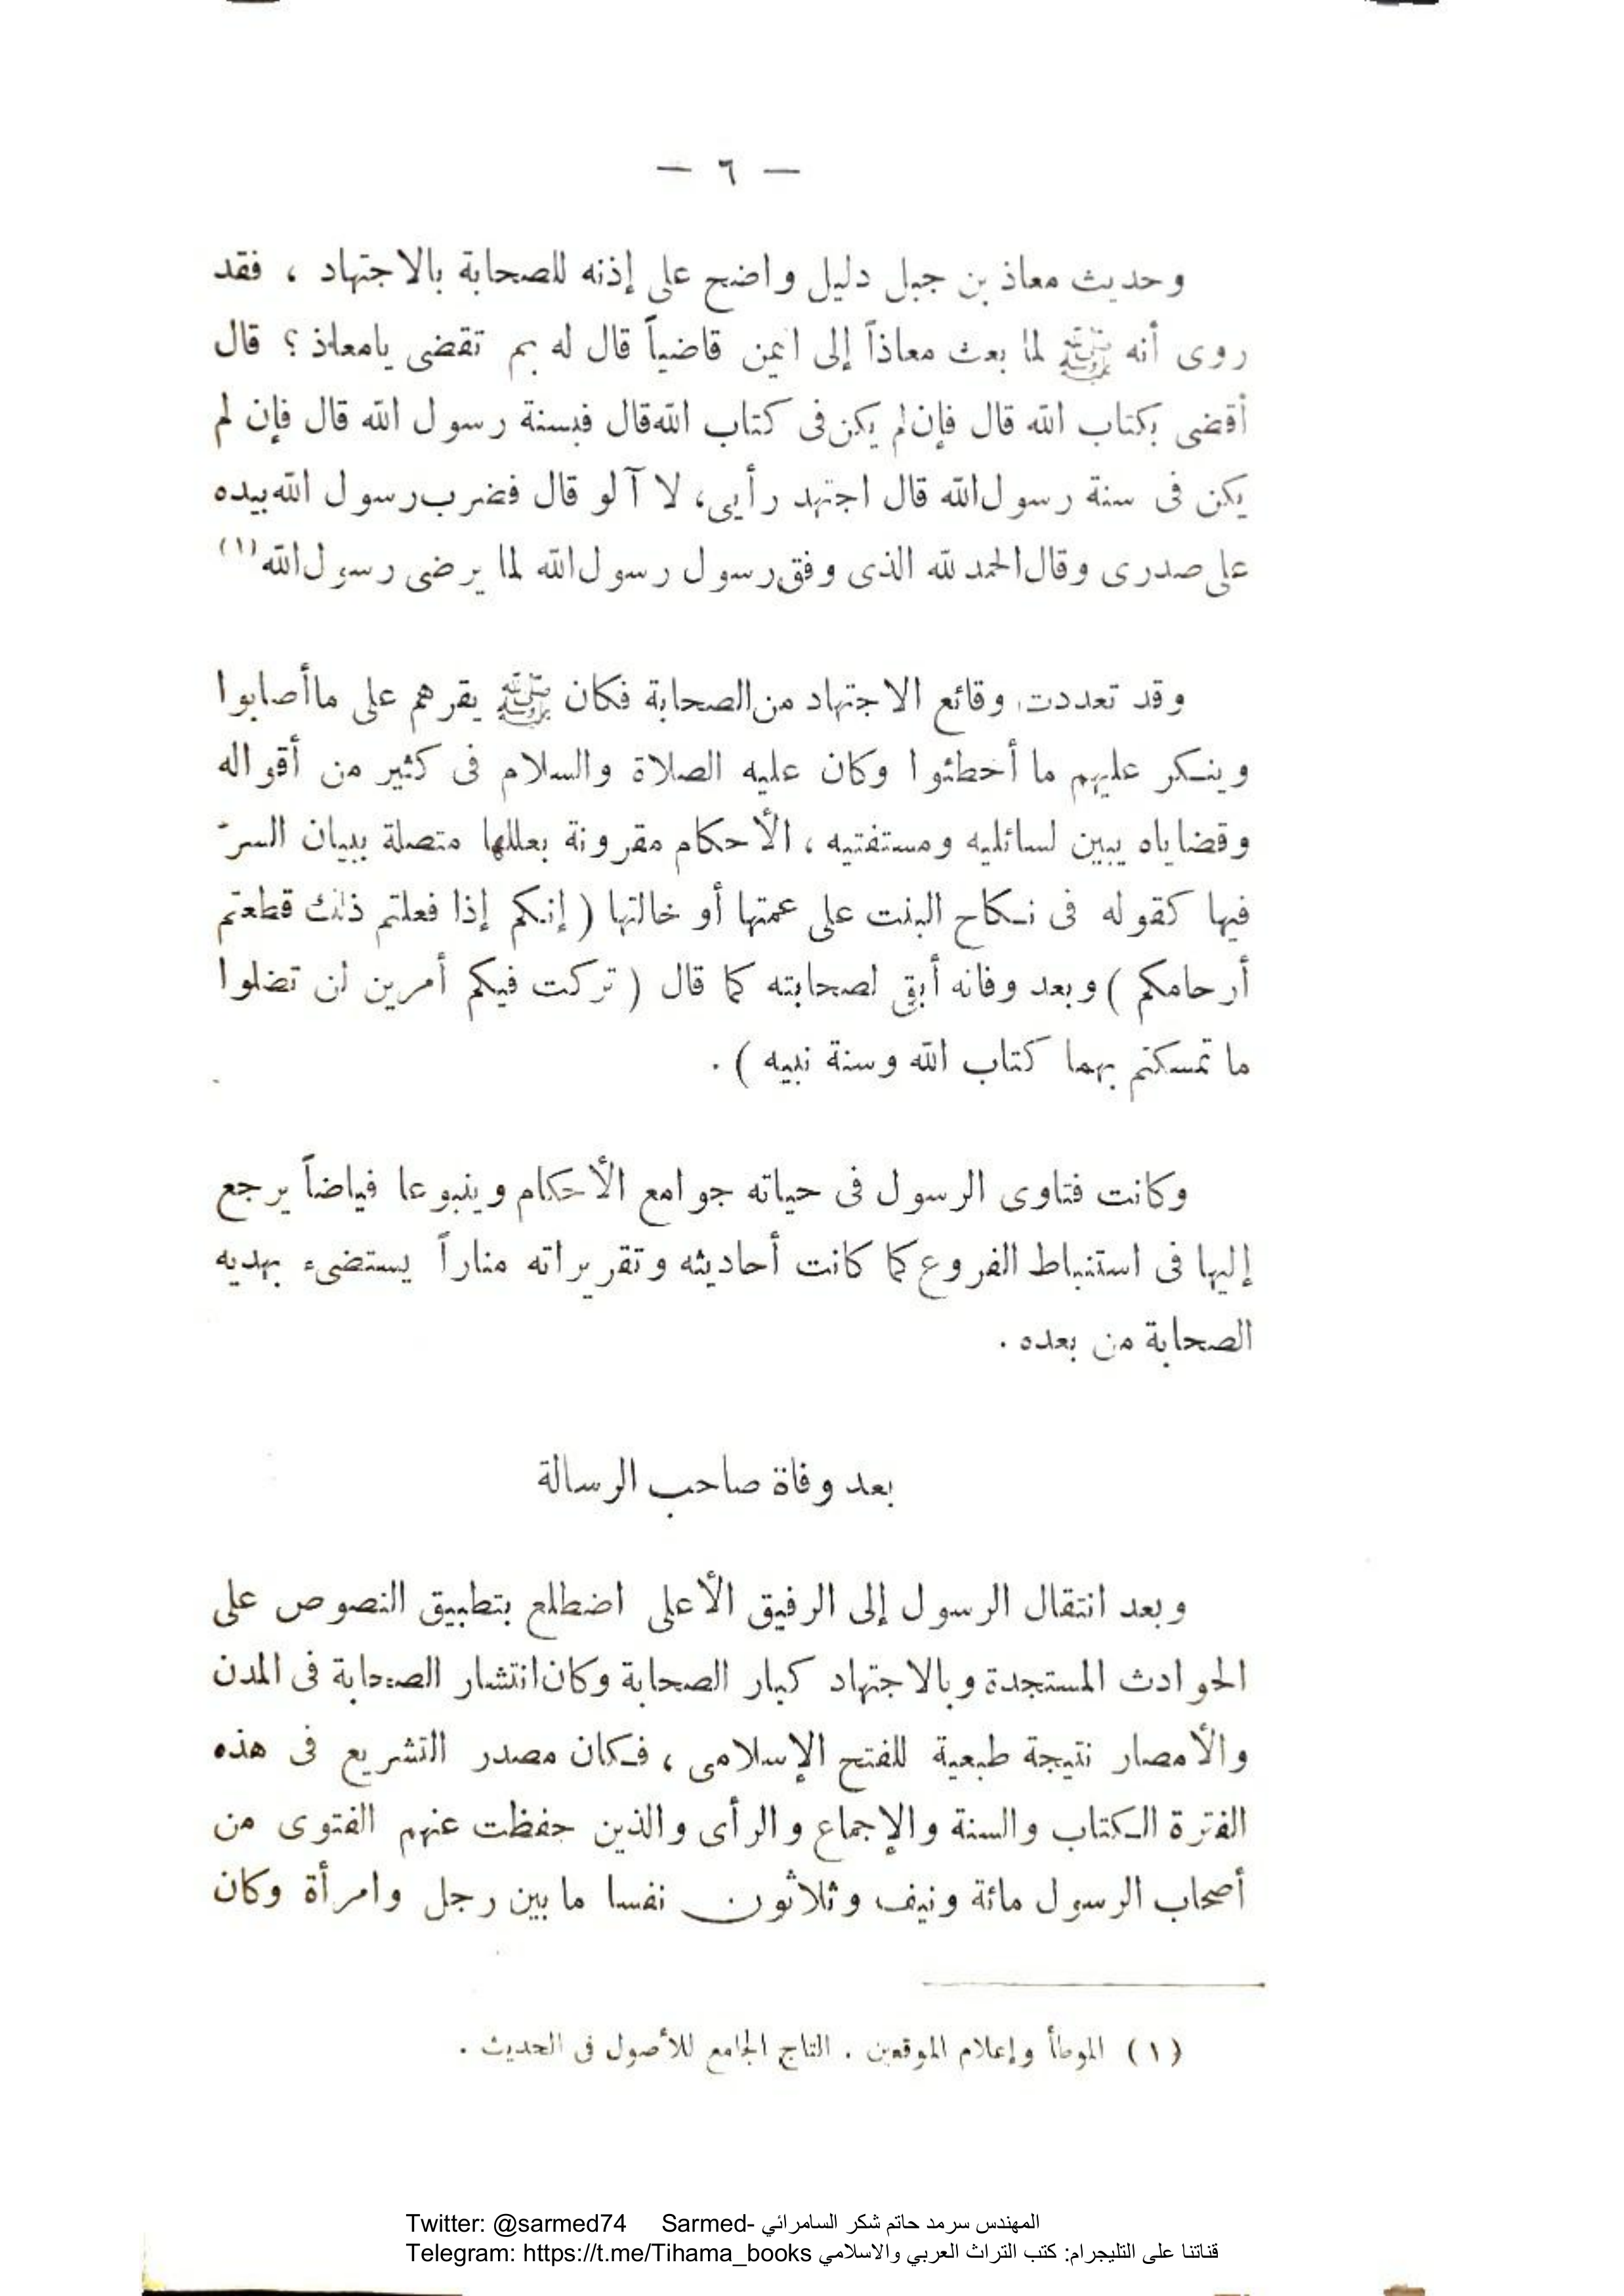 — ٦ —
وحديث معاذ بن جبل دليل واضح على إذنه للصحابة بالاجتهاد ، فقد
روى أنه ﷺ لما بعث معاذاً إلى اليمن قاضياً قال له بم تقضى يامعاذ ؟ قال
أقضى بكتاب الله قال فإن لم يكن فى كتاب الله قال فبسنة رسول الله قال فإن لم
يكن فى سنة رسول الله قال اجتهد رأيى، لا آلو قال فضرب رسول الله بيده
على صدرى وقال الحمد لله الذى وفق رسول رسول الله لما يرضى رسول الله (١)
وقد تعددت وقائع الاجتهاد من الصحابة فكان ﷺ يقرهم على ما أصابوا
وينكر عليهم ما أخطئوا وكان عليه الصلاة والسلام فى كثير من أقواله
وقضاياه يبين لسائليه ومستفتيه ، الأحكام مقرونة بعللها متصلة ببيان السرّ
فيها كقوله فى نكاح البنت على عمتها أو خالتها ( إنكم إذا فعلتم ذلك قطعتم
أرحامكم ) وبعد وفاته أبقى لصحابته كما قال ( تركت فيكم أمرين لن تضلوا
ما تمسكتم بهما كتاب الله وسنة نبيه ) .
وكانت فتاوى الرسول فى حياته جوامع الأحكام وينبوعا فياضاً يرجع
إليها فى استنباط الفروع كما كانت أحاديثه وتقريراته مناراً يستضىء بهديه
الصحابة من بعده .
بعد وفاة صاحب الرسالة
وبعد انتقال الرسول إلى الرفيق الأعلى اضطلع بتطبيق النصوص على
الحوادث المستجدة وبالاجتهاد كبار الصحابة وكان انتشار الصحابة فى المدن
والأمصار نتيجة طبعية للفتح الإسلامى ، فكان مصدر التشريع فى هذه
الفترة الكتاب والسنة والإجماع والرأى والذين حفظت عنهم الفتوى من
أصحاب الرسول مائة ونيف وثلاثون نفسا ما بين رجل وامرأة وكان
(١) الموطأ وإعلام الموقعين . التاج الجامع للأصول فى الحديث .
Twitter: @sarmed74 Sarmed- المهندس سرمد حاتم شكر السامرائي
Telegram: https://t.me/Tihama_books قناتنا على التليجرام: كتب التراث العربي والاسلامي